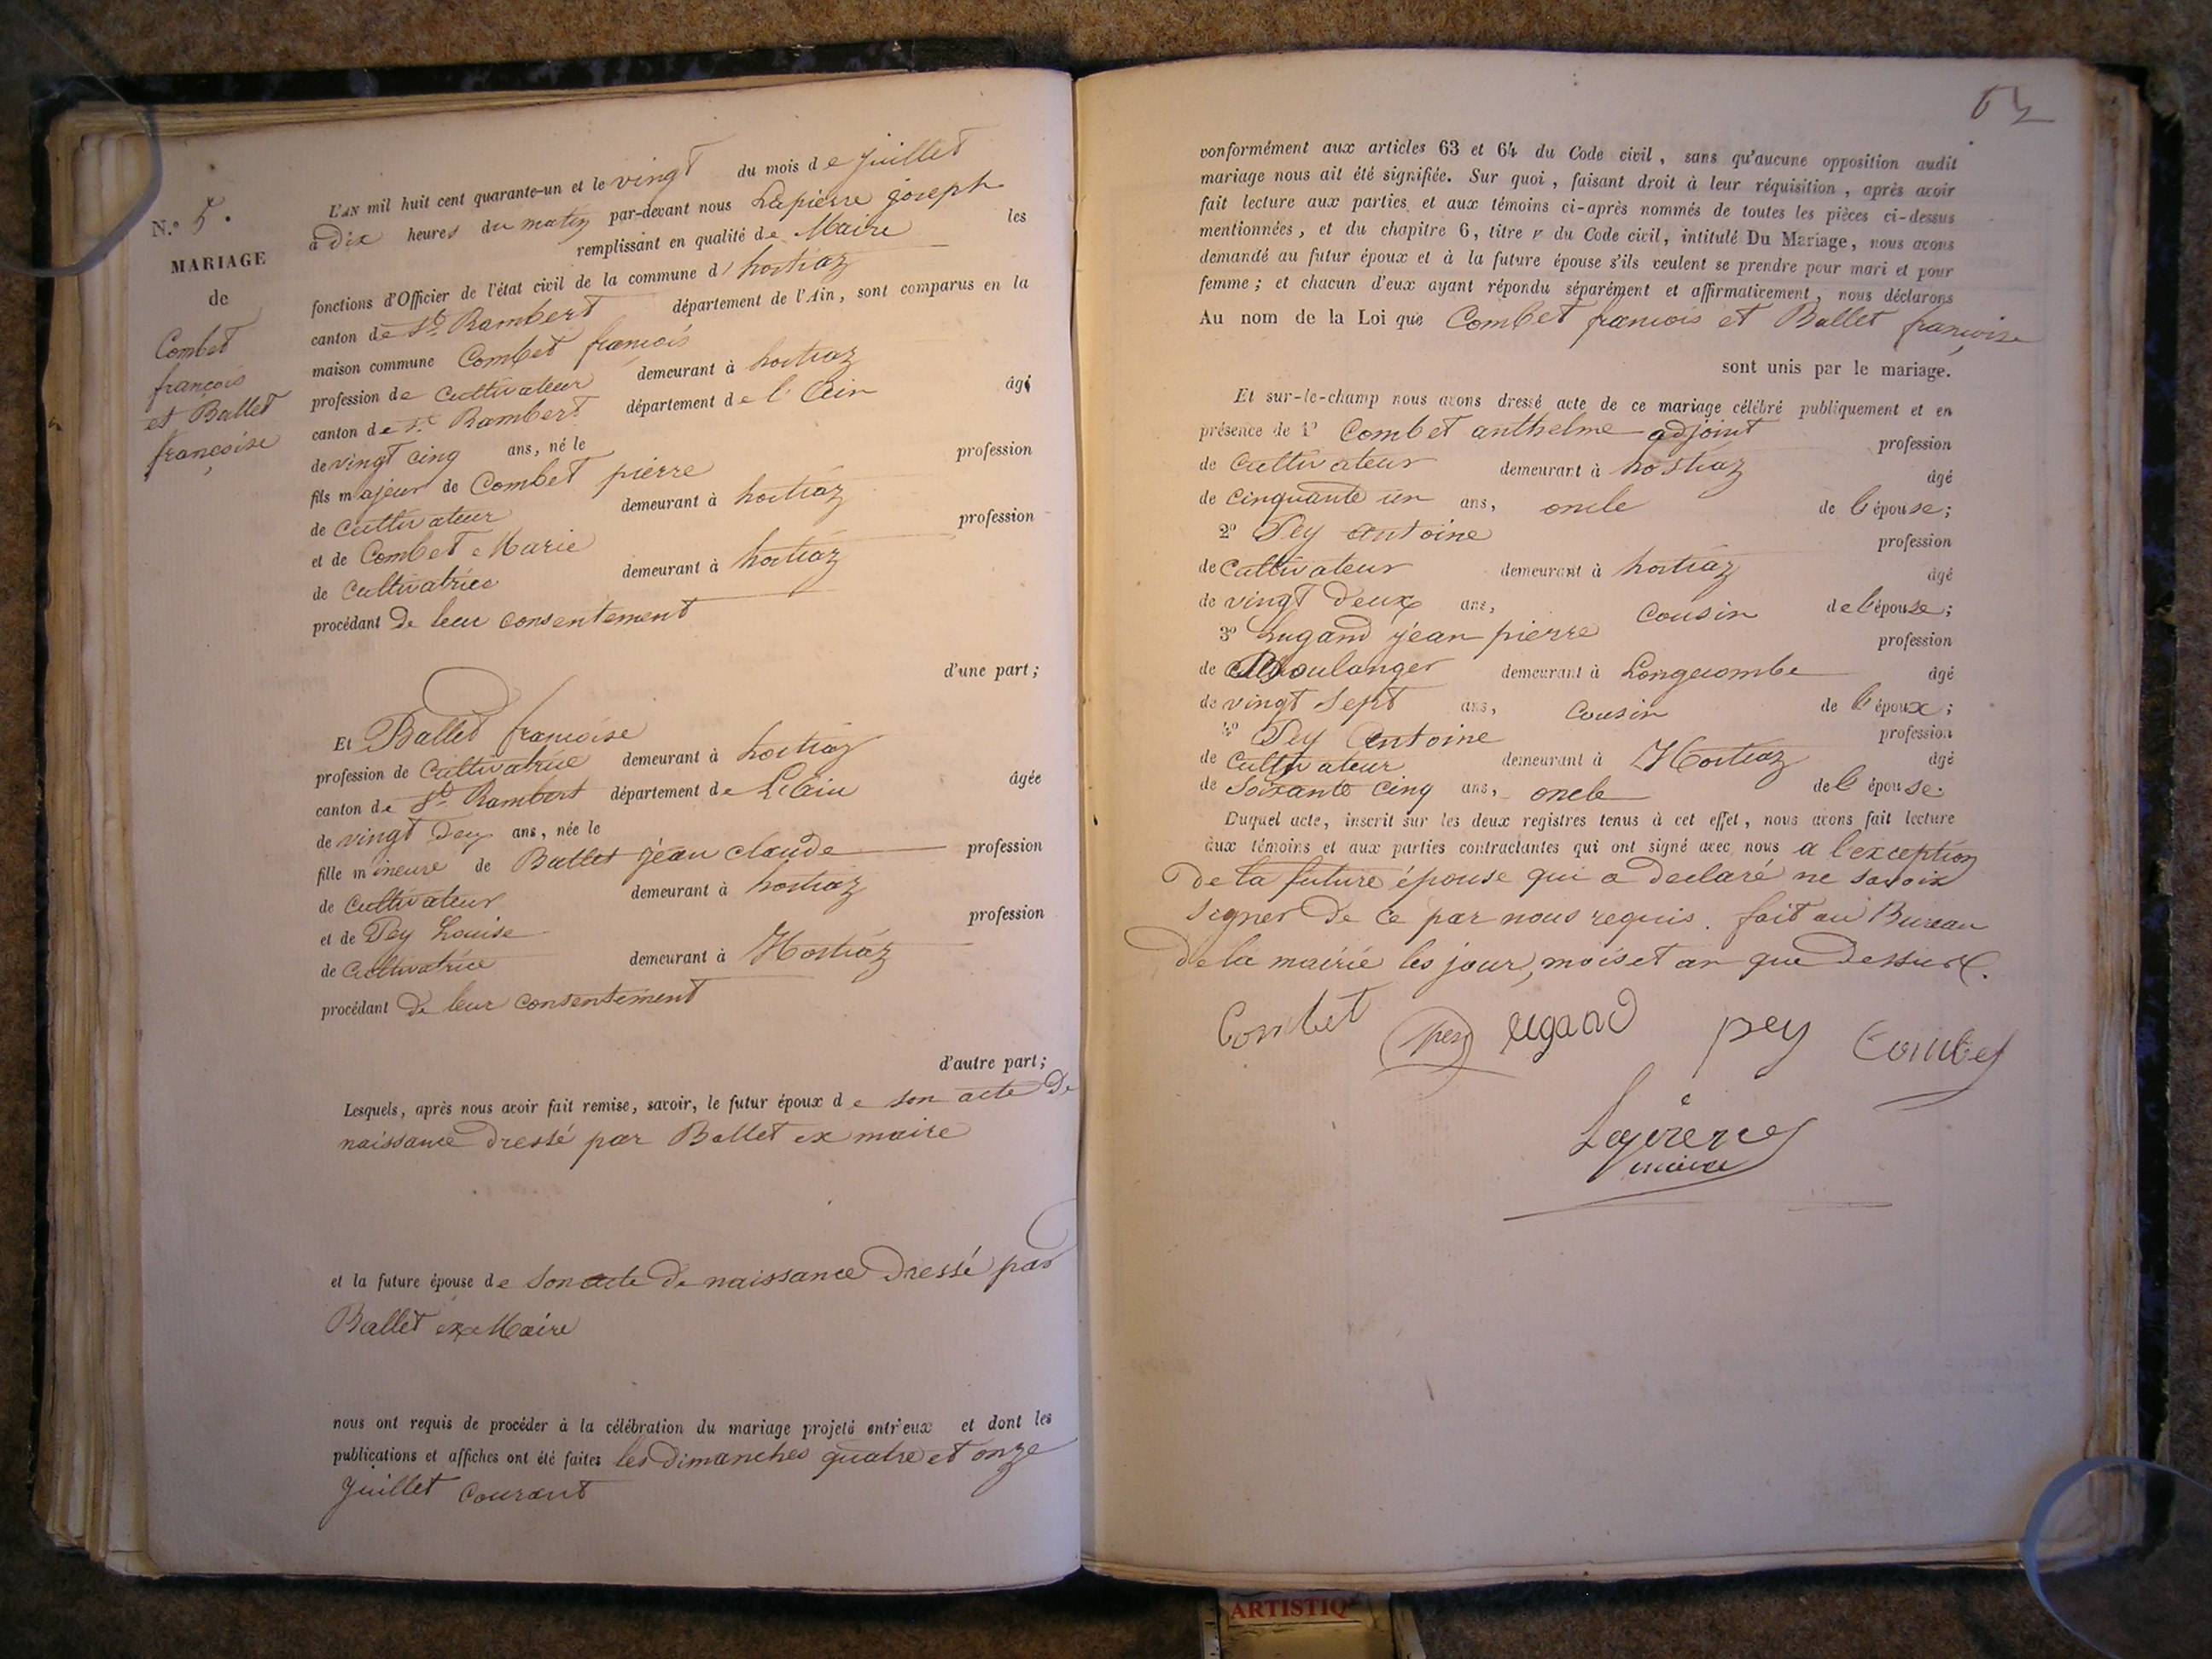 N.° 5.
MARIAGE
de
Combet
françois
et Ballet
françoise
L'AN mil huit cent quarante-un et le vingt du mois de juillet
à Dix heures du matin par-devant nous Lapierre joseph
remplissant en qualité de Maire les
fonctions d'Officier de l'état civil de la commune d' hostiaz
canton de St. Rambert département de l'Ain, sont comparus en la
maison commune Combet françois
profession de cultivateur demeurant à hostiaz
canton de St. Rambert département de l'Ain âgé
de vingt cinq ans, né le
fils majeur de Combet pierre profession
de cultivateur demeurant à hostiaz
et de Combet Marie profession
de cultivatrice demeurant à hostiaz
procédant De leur consentement
d'une part;
Et Ballet françoise
profession de cultivatrice demeurant à hostiaz
canton de St. Rambert département de L'Ain âgée
de vingt Deux ans, née le
fille mineure de Ballet jéan claude profession
de cultivateur demeurant à hostiaz
et de Pey Louise profession
de cultivatrice demeurant à Hostiaz
procédant De leur consentement
d'autre part;
Lesquels, après nous avoir fait remise, savoir, le futur époux de son acte De
naissance Dressé par Ballet ex maire
et la future épouse de son acte De naissance Dressé par
Ballet ex Maire
nous ont requis de procéder à la célébration du mariage projeté entr'eux et dont les
publications et affiches ont été faites les Dimanches quatre et onze
juillet courant
conformément aux articles 63 et 64 du Code civil, sans qu'aucune opposition audit
mariage nous ait été signifiée. Sur quoi, faisant droit à leur réquisition, après avoir
fait lecture aux parties et aux témoins ci-après nommés de toutes les pièces ci-dessus
mentionnées, et du chapitre 6, titre v du Code civil, intitulé Du Mariage, nous avons
demandé au futur époux et à la future épouse s'ils veulent se prendre pour mari et pour
femme; et chacun d'eux ayant répondu séparément et affirmativement, nous déclarons
Au nom de la Loi que Combet francois et Ballet françoise
sont unis par le mariage.
Et sur-le-champ nous avons dressé acte de ce mariage célébré publiquement et en
présence de 1° Combet anthelme adjoint profession
de cultivateur demeurant à hostiaz âgé
de cinquante un ans, oncle de l'épouse;
2° Pey antoine profession
de cultivateur demeurant à hostiaz âgé
de vingt Deux ans, cousin de l'épouse;
3° Lugand jean pierre profession
de Boulanger demeurant à Longecombe âgé
de vingt sept ans, cousin de l'époux;
4° Pey Antoine profession
de cultivateur demeurant à Hostiaz âgé
de soixante cinq ans, oncle de l'épouse.
Duquel acte, inscrit sur les deux registres tenus à cet effet, nous avons fait lecture
aux témoins et aux parties contractantes qui ont signé avec nous a l'exception
De la future épouse qui a declaré ne savoir
signer De ce par nous requis. fait au Bureau
De la mairie les jour, mois et an que Dessus.
Combet pey lugand pey Combet
Lapierre
maire
ARTISTIQ